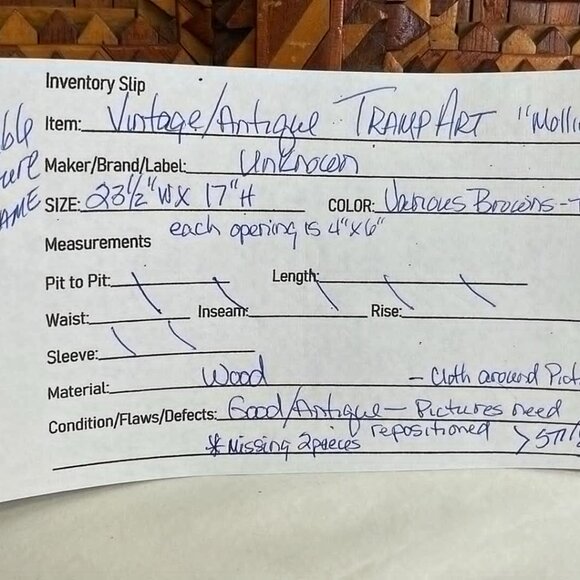 Inventory Slip
Item: Vintage/Antique TRAMP ART "Molli
ble
Maker/Brand/Label: Unknown
ure
SIZE: 23½"W X 17"H COLOR: Various Browns-
AME
each opening is 4"x6"
Measurements
Pit to Pit: Length:
Waist: Inseam: Rise:
Sleeve:
Material: Wood - Cloth around Pict
Condition/Flaws/Defects: Good/Antique - Pictures need
repositioned
* Missing 2 pieces